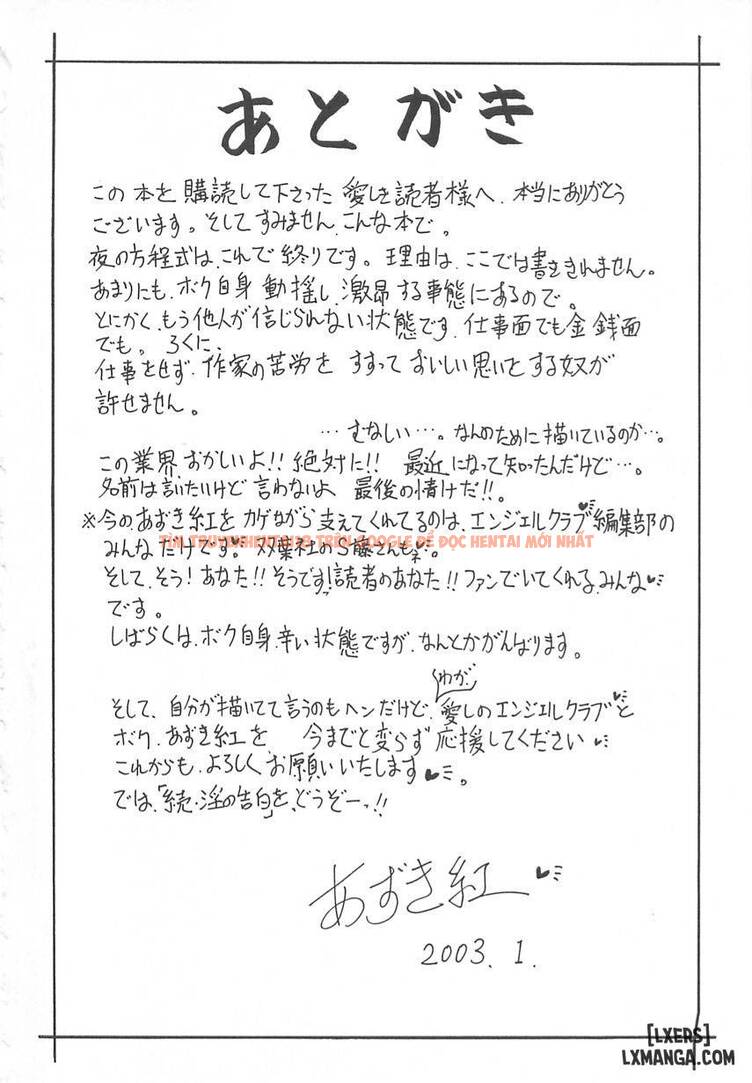 あとがき
この本を購読して下さった愛しき読者様へ、本当にありがとう
ございます。そしてすみません、こんな本で。
夜の方程式は、これで終りです。理由は、ここでは書ききれません。
あまりにも、ボク自身動揺し、激昂する事態にあるので。
とにかく、もう他人が信じられない状態です、仕事面でも金銭面
でも。ろくに、
仕事をせず、作家の苦労をすすっておいしい思いをする奴が
許せません。
…むなしい…。なんのために描いているのか…。
この業界、おかしいよ!!絶対に!!最近になって知ったんだけど…。
名前は言いたいけど言わないよ 最後の情けだ!!。
※今のあずき紅をカゲながら支えてくれてるのは、エンジェルクラブ編集部の
みんなだけです。双葉社のS藤さんもネ。
TÌM TRUYENHENTAI18 TRÊN GOOGLE ĐỂ ĐỌC HENTAI MỚI NHẤT
そして、そう!あなた!!そうです!読者のあなた!!ファンでいてくれる、みんな♥
です。
しばらくは、ボク自身、辛い状態ですが、なんとかがんばります。
わが
そして、自分が描いてて言うのもヘンだけど、愛しのエンジェルクラブと
ボク、あずき紅を、今までと変らず応援してください♥
これからも、よろしくお願いいたします♥。
では、「続・淫の告白」を、どうぞーっ!!
あずき紅♥
2003.1.
[LXERS]
LXMANGA.COM